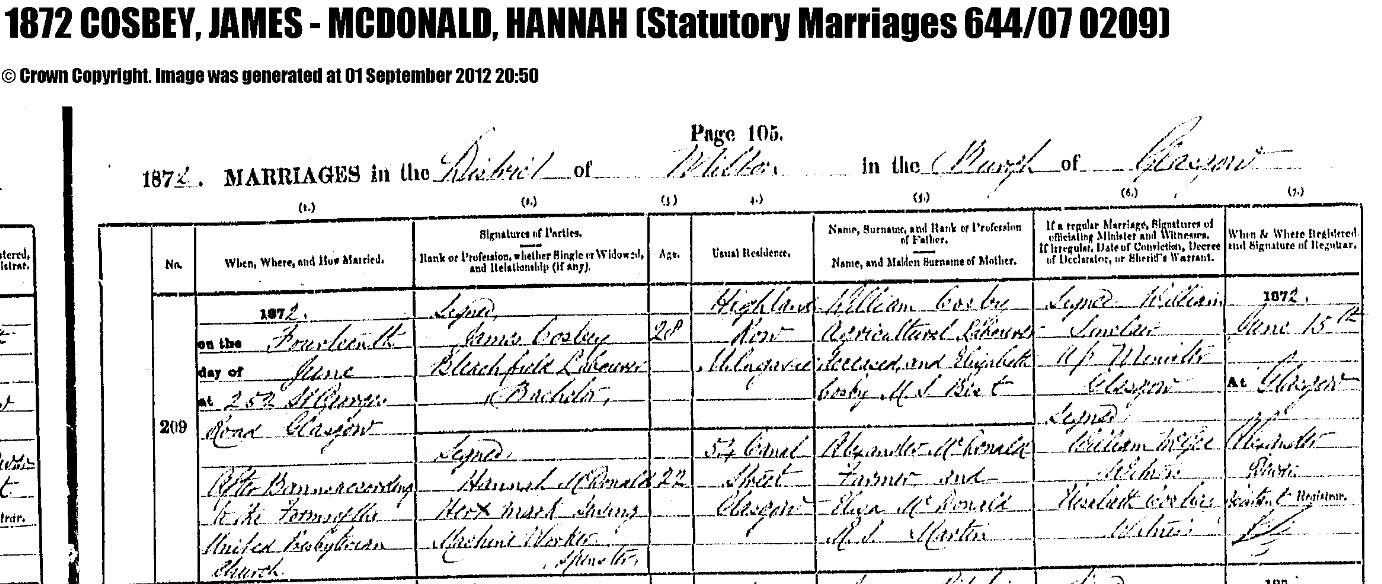 1872 COSBEY, JAMES - MCDONALD, HANNAH (Statutory Marriages 644/07 0209)
© Crown Copyright. Image was generated at 01 September 2012 20:50
Page 105.
1872. MARRIAGES in the District of Milton in the Burgh of Glasgow
(1.) (2.) (3) 4.) (5.) (6.) (7.)
No.
When, Where, and How Married.
Signatures of Parties.
Rank or Profession, whether Single or Widowed,
and Relationship (if any).
Age.
Usual Residence.
Name, Surname, and Rank or Profession
of Father.
Name, and Maiden Surname of Mother.
If a regular Marriage, Signatures of
officiating Minister and Witnesses.
If irregular, Date of Conviction, Decree
of Declarator, or Sheriff's Warrant.
When & Where Registered
and Signature of Registrar.
tered,
istrar.
209
1872.
on the Fourteenth
day of June
at 252 St Georges
Road Glasgow
After Banns according
to the Forms of the
United Presbyterian
Church.
Signed
James Cosbey
Bleachfield Labourer
(Bachelor)
Signed
Hannah McDonald
Her x mark Sewing
Machine Worker
Spinster
28
22
Highland
Row
Milngavie
54 Canal
Street
Glasgow
William Cosby
Agricultural Labourer
deceased and Elizabeth
Cosby M.S.
Alexander McDonald
Farmer and
Eliza McDonald
M.S. Martin
Signed William
Sinclair
UP Minister
Glasgow
Signed
William McGee
Witness
Witness
1872.
June 15th
At Glasgow
Alexander
Assistant Registrar.
trar.
187